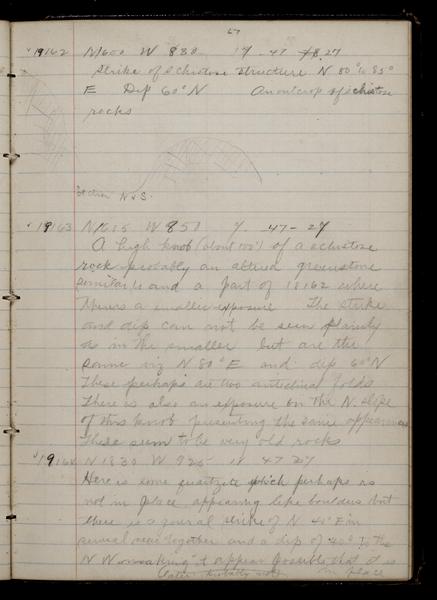 57
19162 N1600 W 830 17 - 47 27
Strike of schistose structure N 80° to 85°
E Dip 60° N An outcrop of schistose
rocks
Section N & S.
19163 N1605 W 850 47-27
A high knob (about 100') of a schistose
rock probably an altered greenstone
similar to and a part of 19162 where
there is a smaller exposure The strike
and dip can not be seen plainly
as in the smaller but are the
same viz N 80° E and dip 60° N
These perhaps are two anticlinal folds
There is also an exposure on the N. slope
of this knob presenting the same appearances
These seem to be very old rocks
19164 N 1830 W 925 47 27
Here is some quartzite which perhaps is
not in place appearing like boulders but
there is a general strike of N 45° E in
several near together and a dip of 40° To the
N W making it appear possible that it is
in place